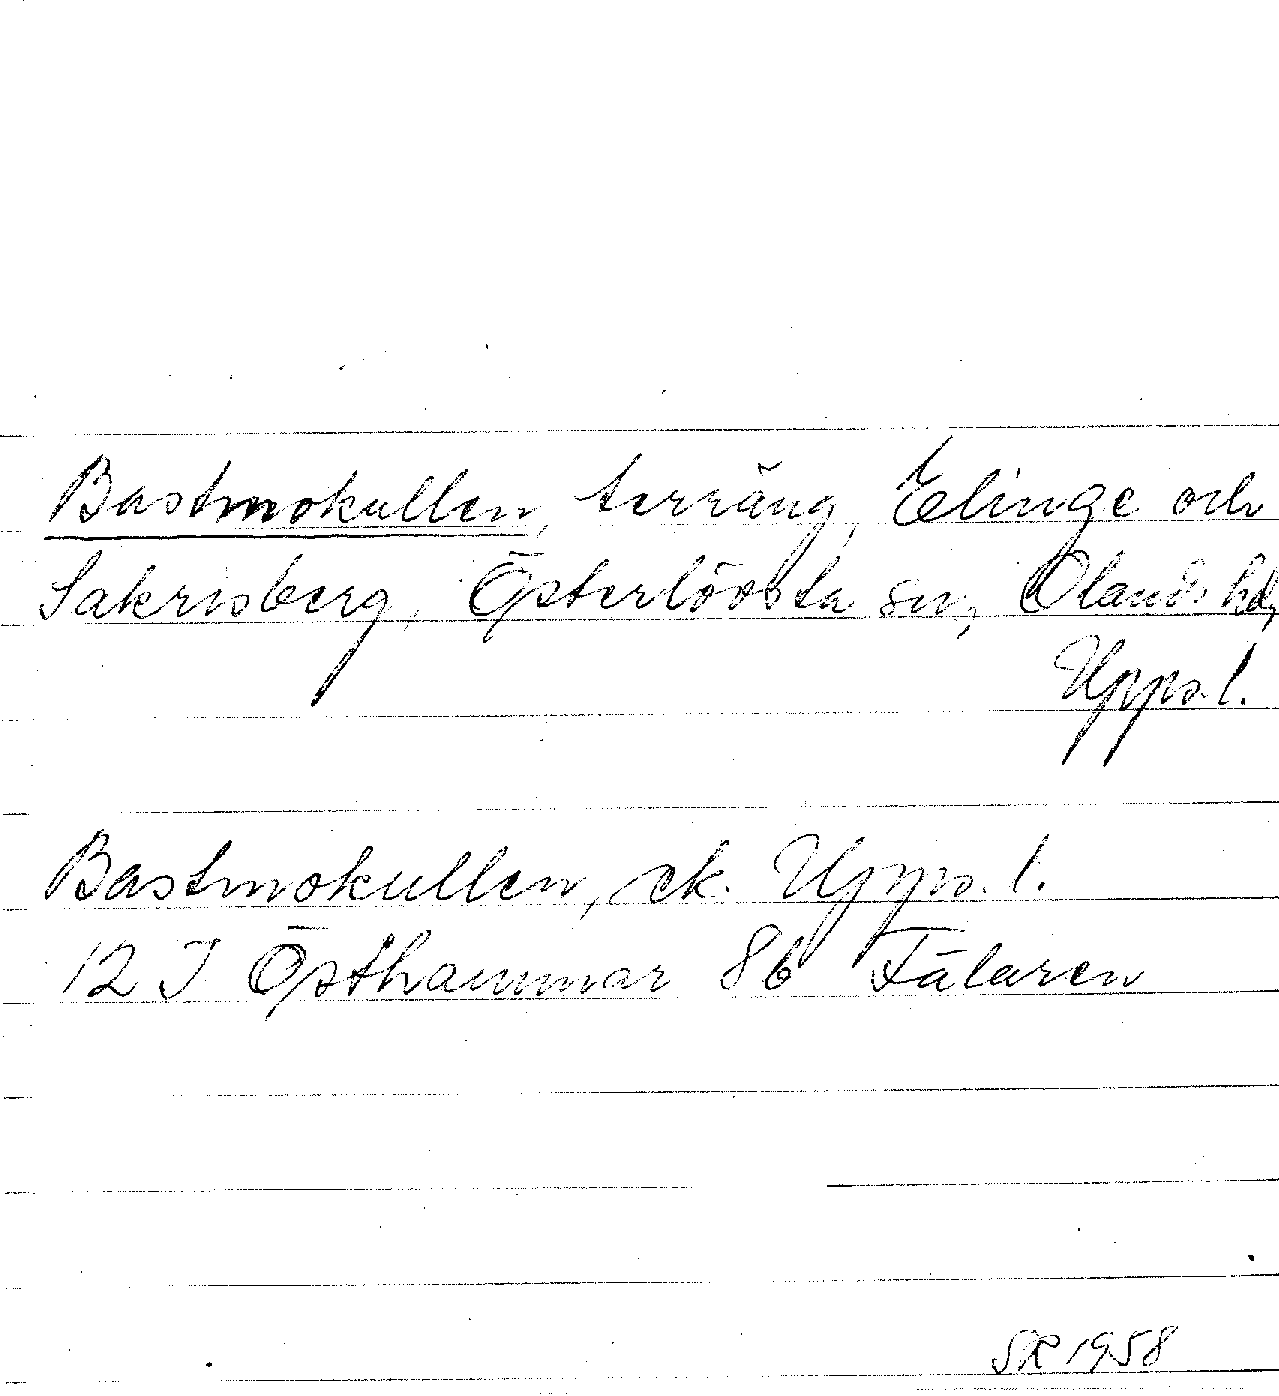 Bastmokullen, terräng, Elinge och
Sakrisberg, Österlövsta sn, Olands hd,
Upps. l.
Bastmokullen, ek. Upps. l.
12 I Östhammar 8b Fälaren
SR 1958